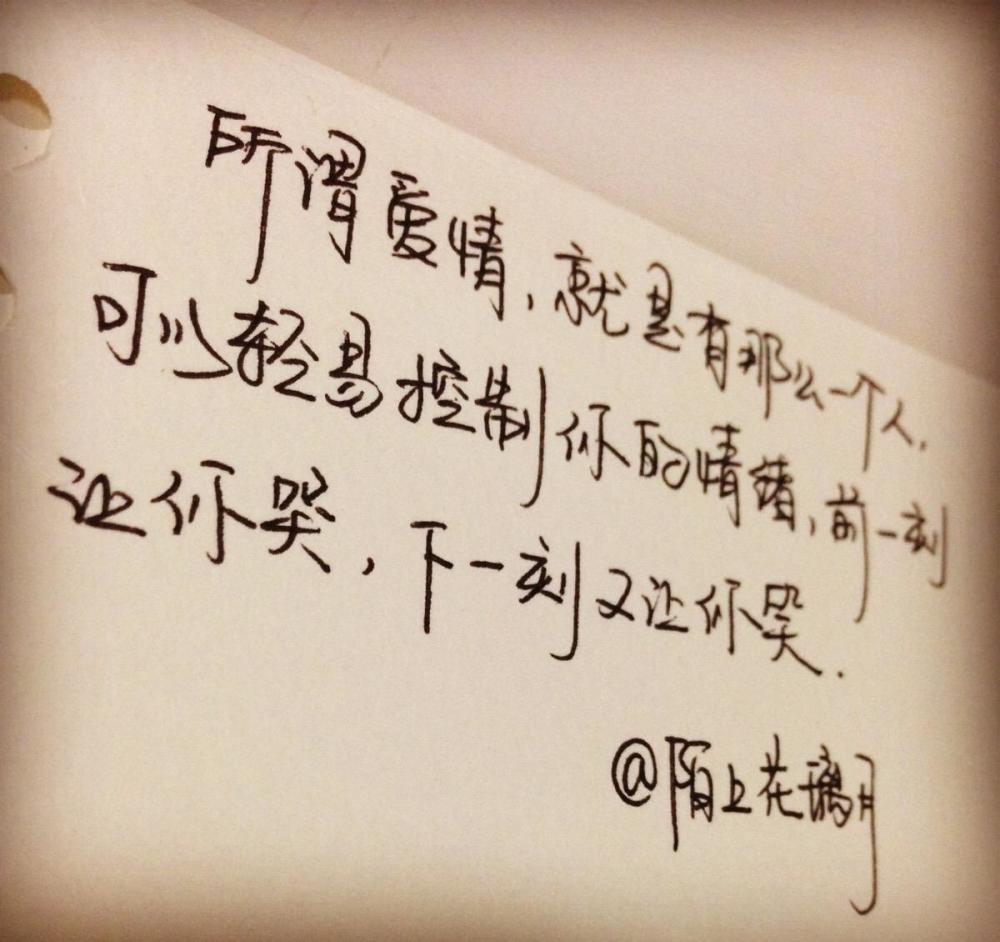 所谓爱情,就是有那么一个人,
可以轻易控制你的情绪,前一刻
让你哭,下一刻又让你哭.
@陌上花璃月